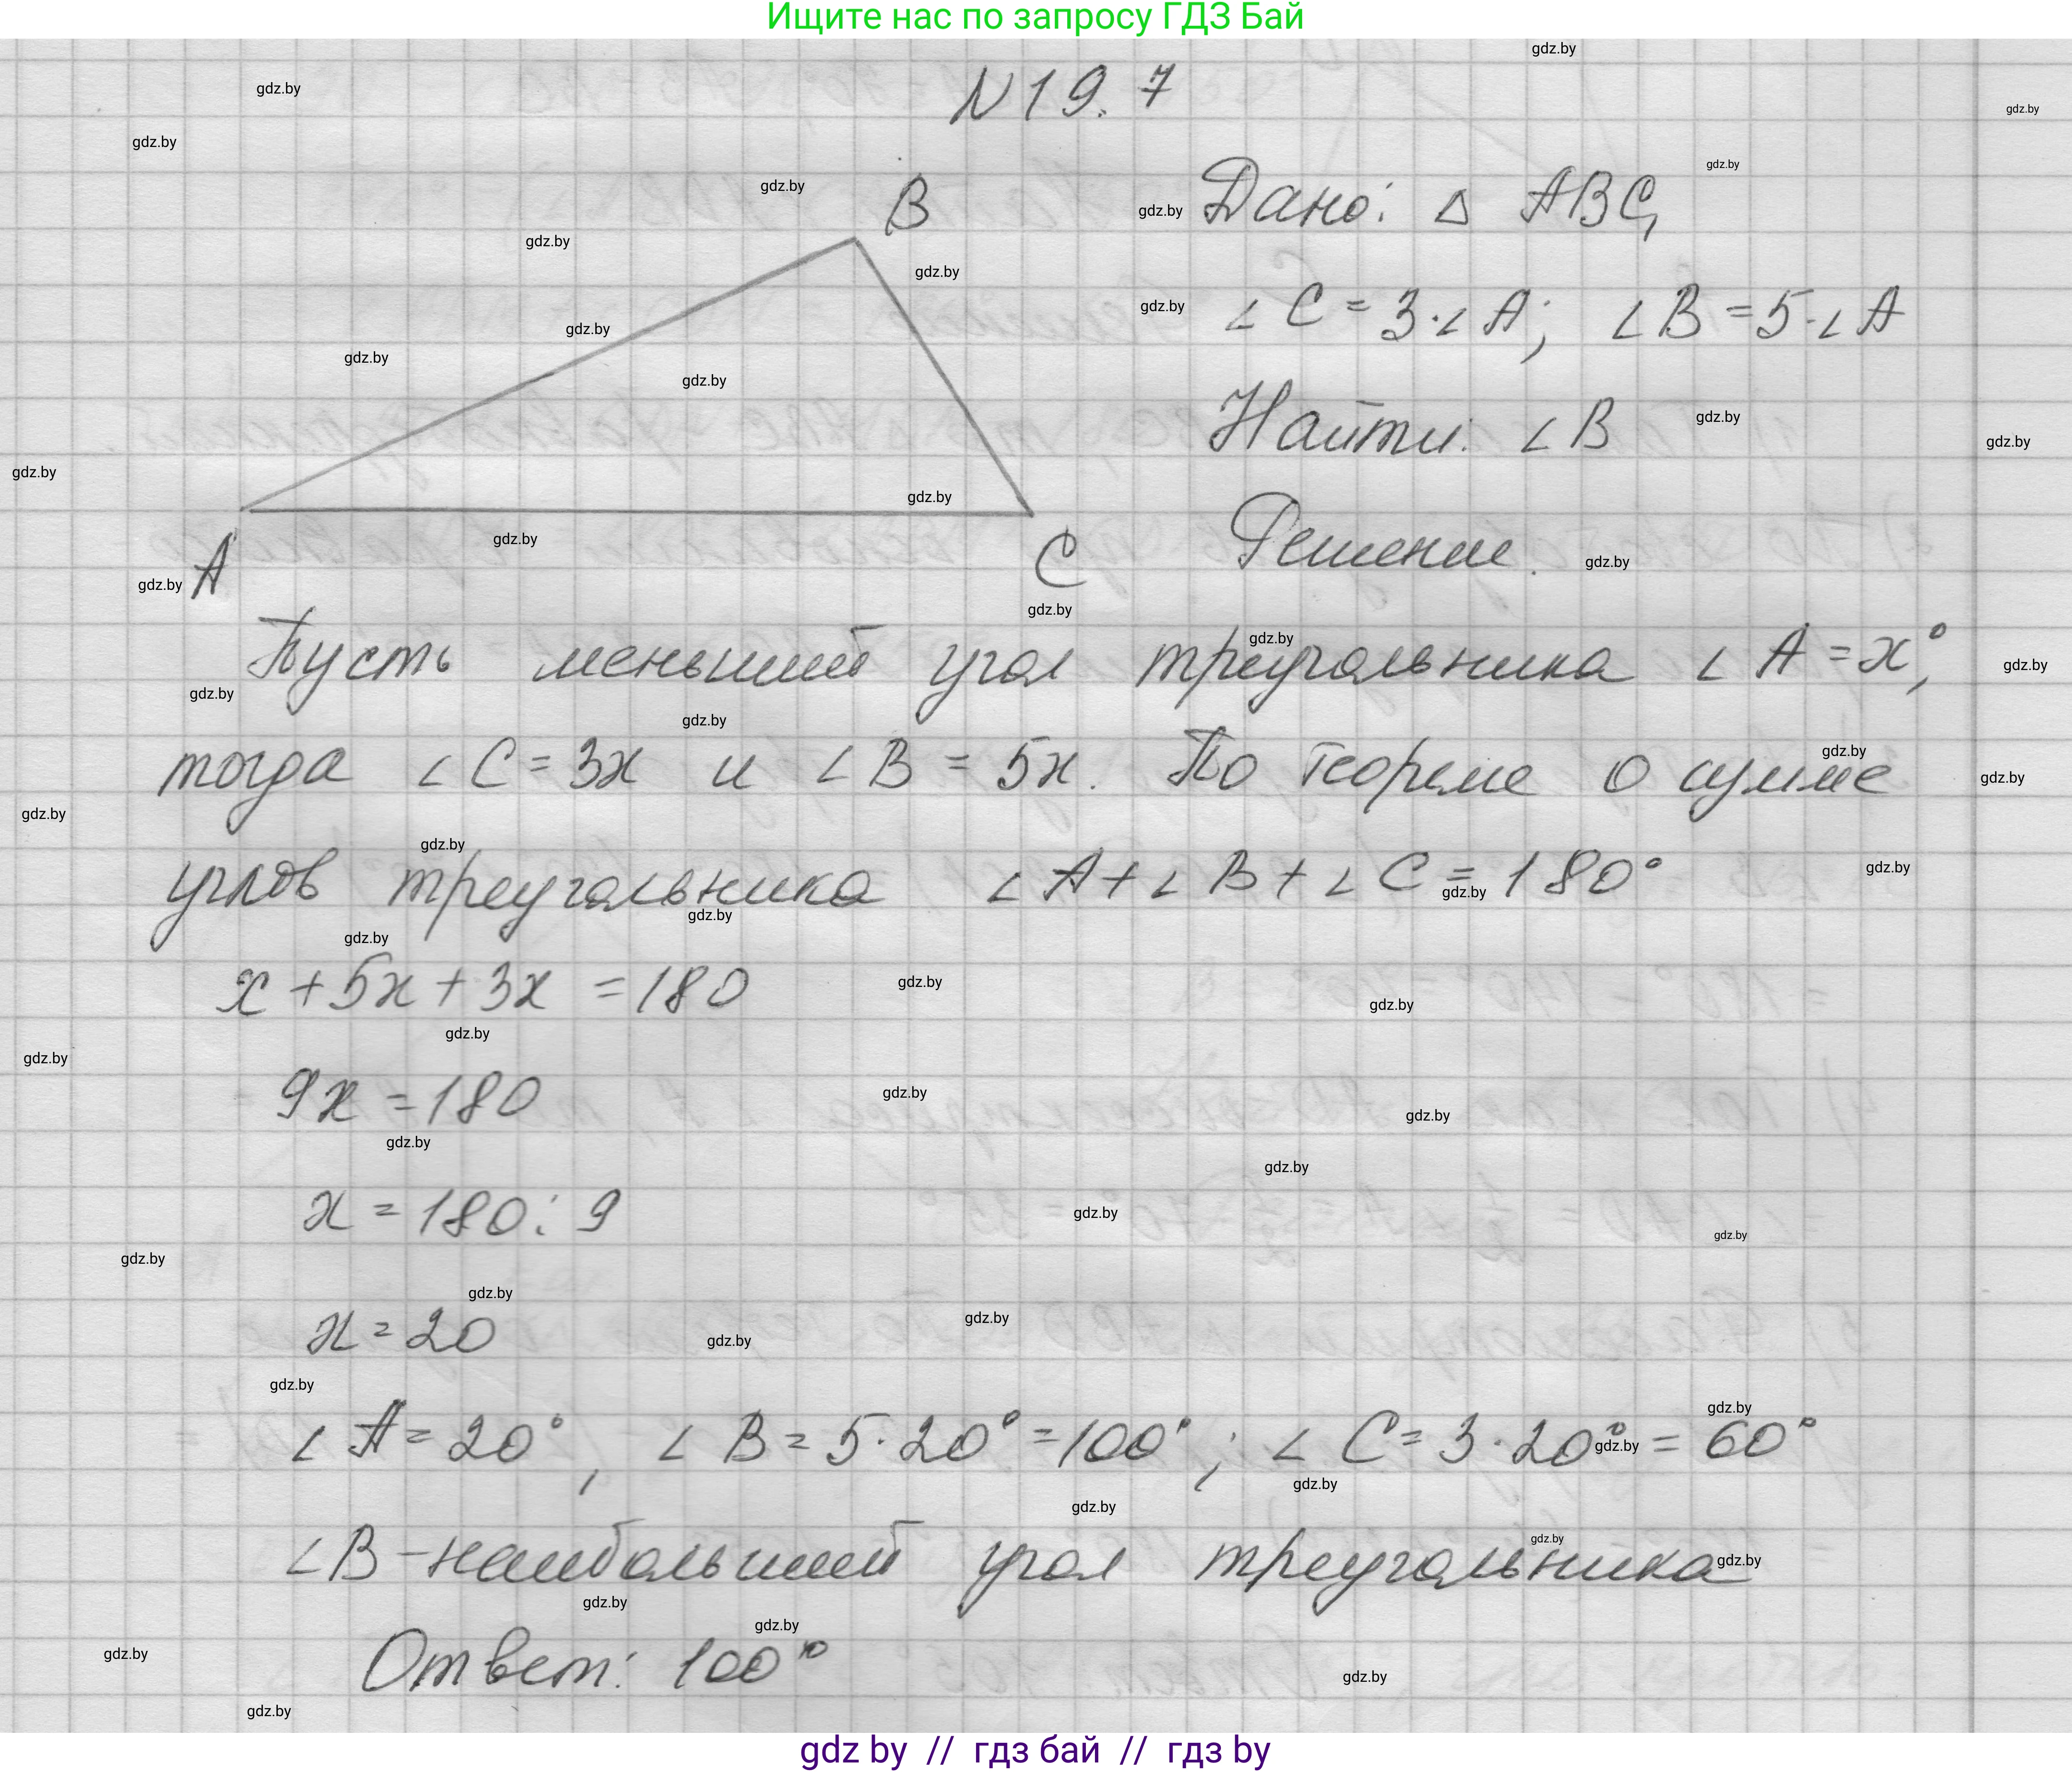 Ищите нас по запросу ГДЗ Бай
N 19.7
B
Дано: Δ ABC,
∠C = 3·∠A; ∠B = 5·∠A
Найти: ∠B
A
C
Решение.
Пусть меньший угол треугольника ∠A = x°,
тогда ∠C = 3x и ∠B = 5x. По теореме о сумме
углов треугольника ∠A + ∠B + ∠C = 180°
x + 5x + 3x = 180
9x = 180
x = 180 : 9
x = 20
∠A = 20°, ∠B = 5·20° = 100°; ∠C = 3·20° = 60°
∠B - наибольший угол треугольника
Ответ: 100°
gdz by // гдз бай // гдз by